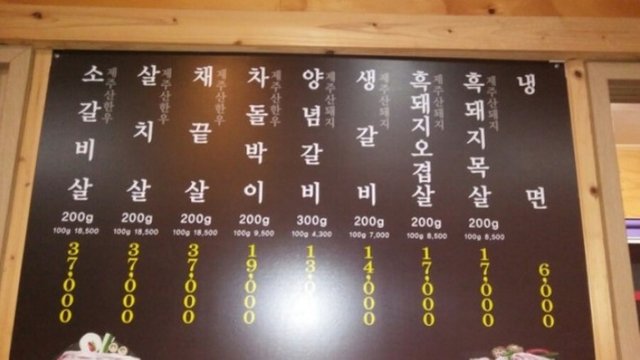 소갈비살
제주산한우
200g
100g 18,500
37,000
살치살
제주산한우
200g
100g 18,500
37,000
채끝살
제주산한우
200g
100g 18,500
37,000
차돌박이
제주산한우
200g
100g 9,500
19,000
양념갈비
제주산돼지
300g
100g 4,300
13,000
생갈비
제주산돼지
200g
100g 7,000
14,000
흑돼지오겹살
제주산돼지
200g
100g 8,500
17,000
흑돼지목살
제주산돼지
200g
100g 8,500
17,000
냉면
6,000